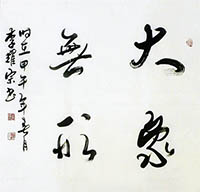 大象
無形
時在甲午年春月
李羅宗書